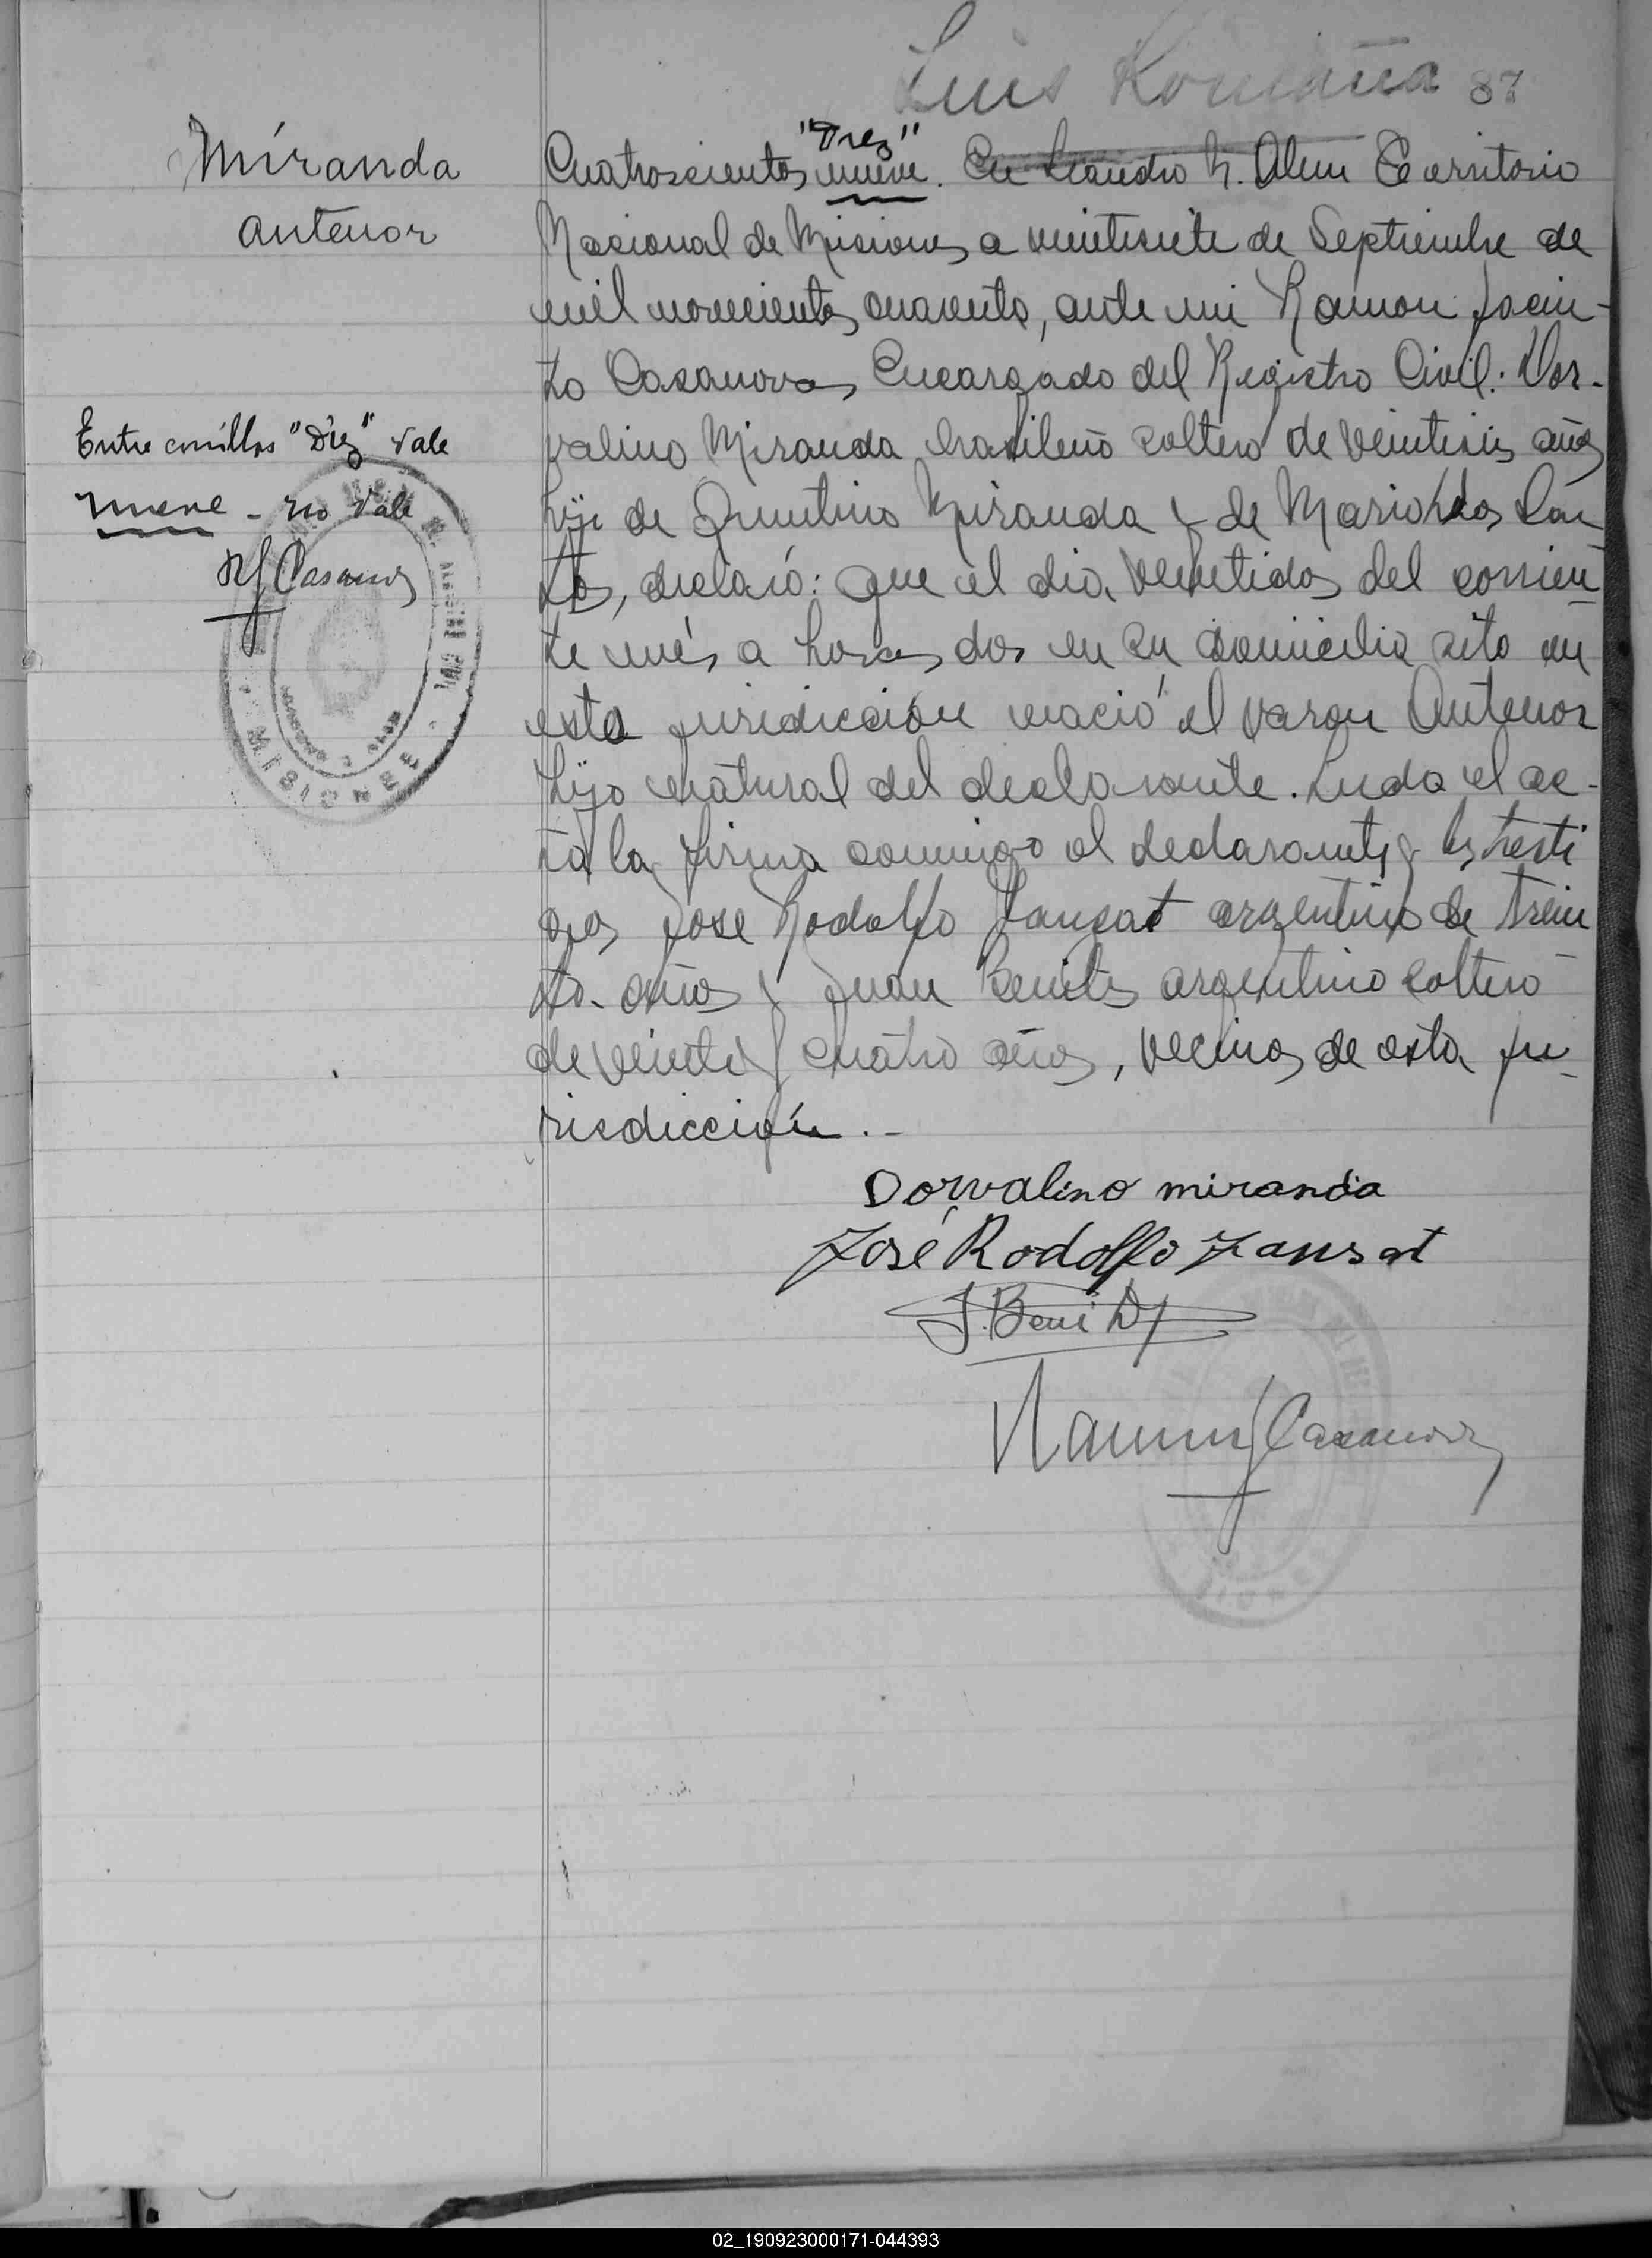 Luis Romaña 87
Miranda
Antenor
"Diez"
Cuatroscientos nueve. En Leandro N. Alem Territorio
Nacional de Misiones a veintisiete de Septiembre de
mil novecientos cuarenta, ante mi Ramon Jacin-
to Casanova, Encargado del Registro Civil: Dor-
valino Miranda brasileño soltero de veintiseis años
hijo de Quintino Miranda y de Maria dos San
tos, declaró: que el dia veintidos del corrien-
te més a horas dos en su domicilio sito en
esta jurisdicción nació el varon Antenor
hijo natural del declarante. Leida el ac-
ta la firma conmigo el declarante y los testi
gos Jose Rodolfo Zansat argentino de trein
ta años y Juan Benites argentino soltero
de veinte y cuatro años, vecinos de esta ju-
risdicción.-
Entre comillas "Diez" Vale
nueve - no Vale
RJCasanova
MISIONES
Dorvalino miranda
José Rodolfo Zansat
J. Benitez
Ramon J Casanova
02_190923000171-044393